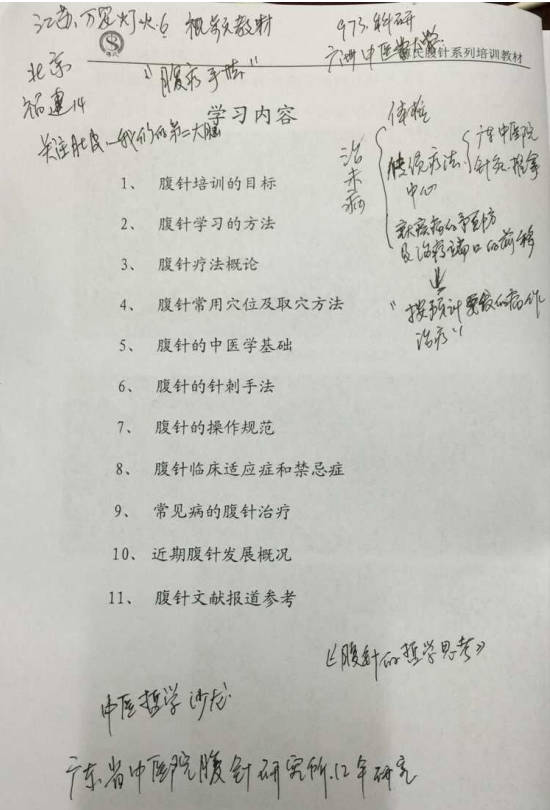 江苏.万家灯火.6 概论教材
973.科研
广州中医药大学
民腹针系列培训教材
北京
福建14
"腹疗手法"
关注肚皮—我们的第二大脑
学习内容
治未病
体检
腹侯疗法
中心
广东中医院
针灸.推拿
及治疗端口的前移
"按预计要发的病作
治疗"
1、 腹针培训的目标
2、 腹针学习的方法
3、 腹针疗法概论
4、 腹针常用穴位及取穴方法
5、 腹针的中医学基础
6、 腹针的针刺手法
7、 腹针的操作规范
8、 腹针临床适应症和禁忌症
9、 常见病的腹针治疗
10、 近期腹针发展概况
11、 腹针文献报道参考
《腹针的哲学思考》
中医哲学沙龙
广东省中医院腹针研究所.12年研究